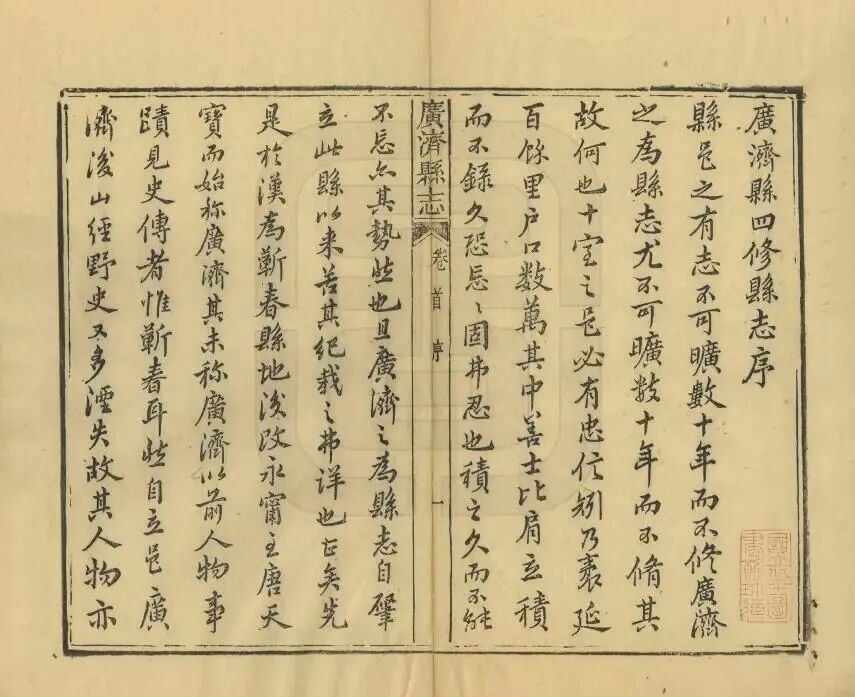 廣濟縣四修縣志序
縣邑之有志不可曠數十年而不修廣濟
之為縣志尤不可曠數十年而不脩其
故何也十室之邑必有忠信矧乃袤延
百餘里户口数萬其中善士比肩立積
而不錄久恐忘忘固弗忍也積之久而不能
廣濟縣志
卷首
序
一
不忘亦其勢然也且廣濟之為縣志自肇
立此縣以来苦其紀載之弗詳也玄矣先
是於漢為蘄春縣地後改永甯至唐天
寶而始称廣濟其未称廣濟以前人物事
蹟見史傳者惟蘄春耳然自立邑廣
濟後山經野史又多湮失故其人物亦